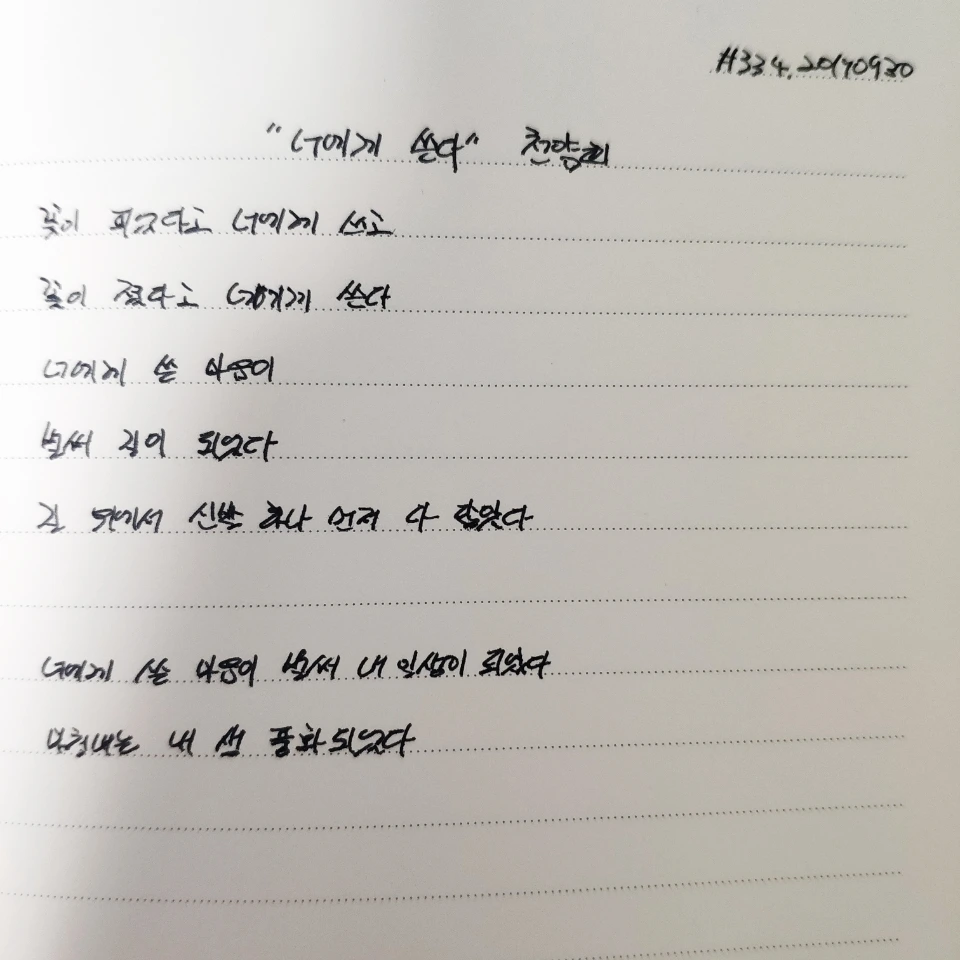 #334. 20170930
"너에게 쓴다" 천양희
꽃이 피었다고 너에게 쓰고
꽃이 졌다고 너에게 쓴다
너에게 쓴 마음이
벌써 길이 되었다
길 위에서 신발 하나 먼저 다 닳았다
너에게 쓴 마음이 벌써 내 일생이 되었다
마침내는 내 생 풍화되었다